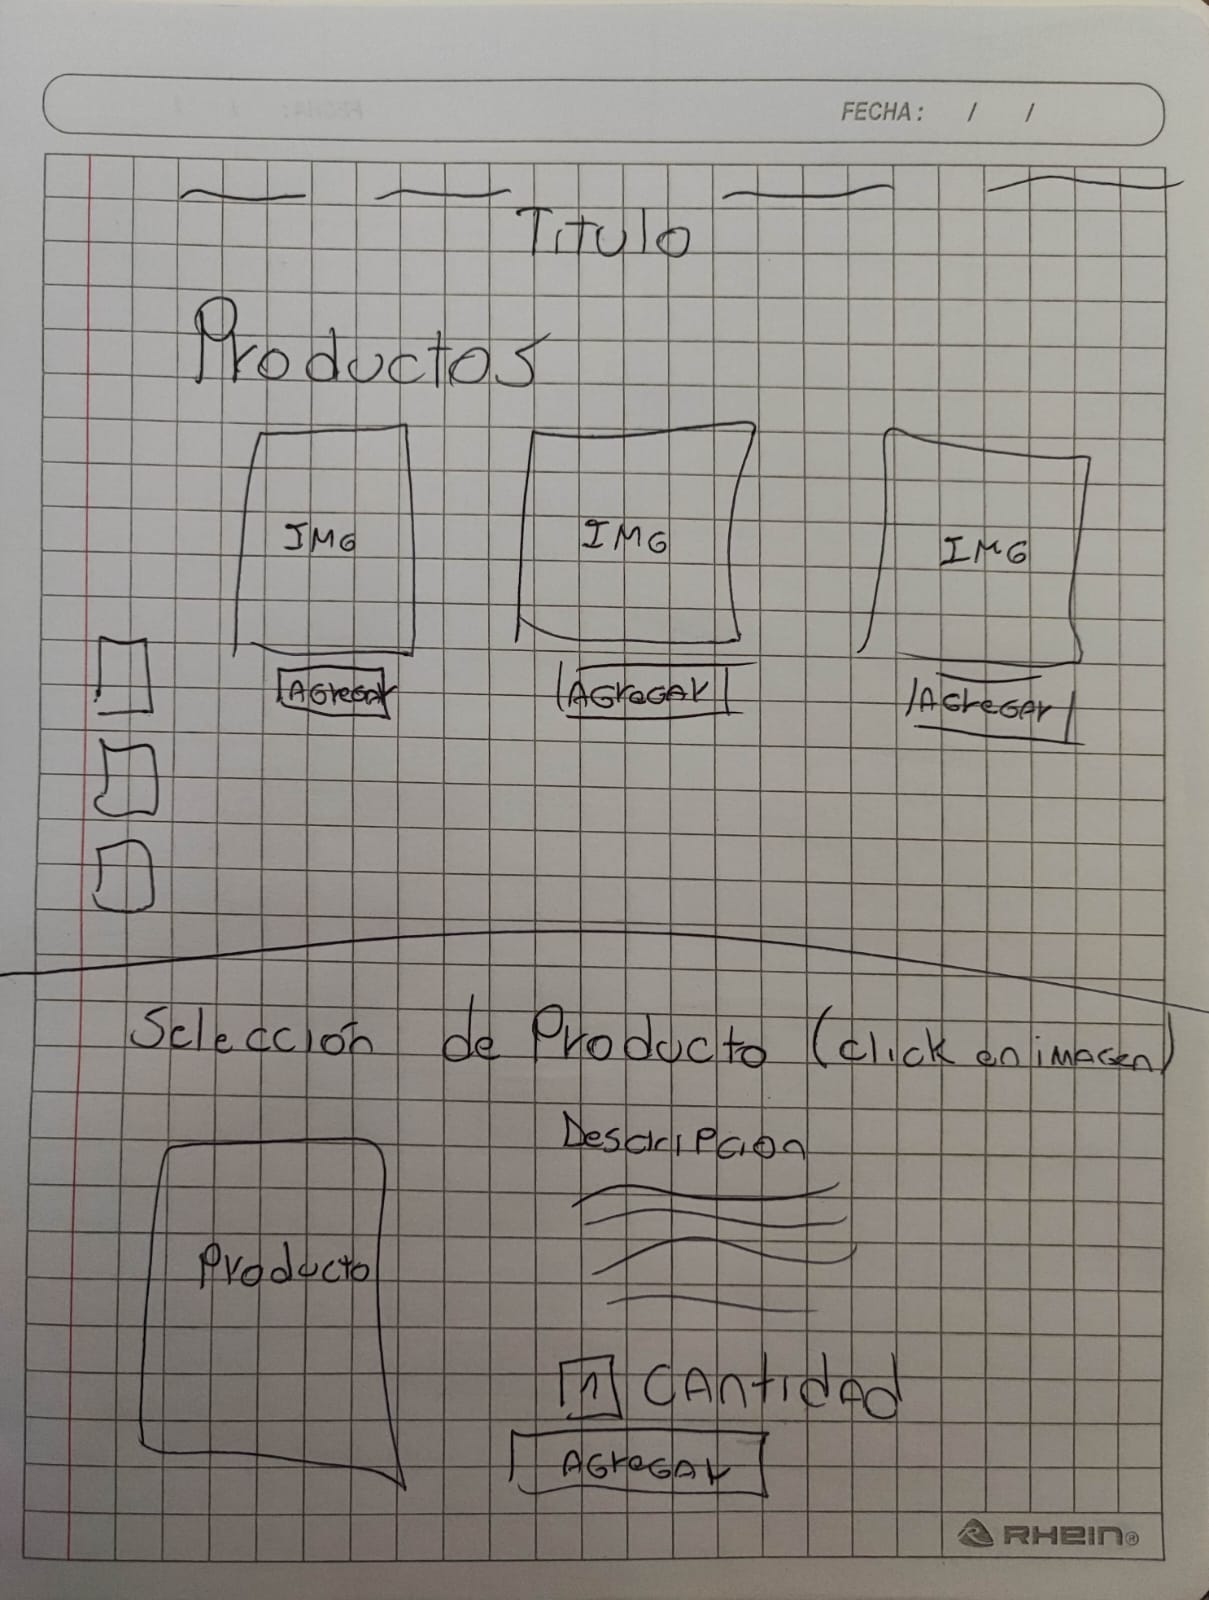 FECHA: / /
Titulo
Productos
IMG IMG IMG
Agregar Agregar Agregar
Selección de Producto (click en imagen)
Descripcion
Producto
1 Cantidad
Agregar
RHEIN®